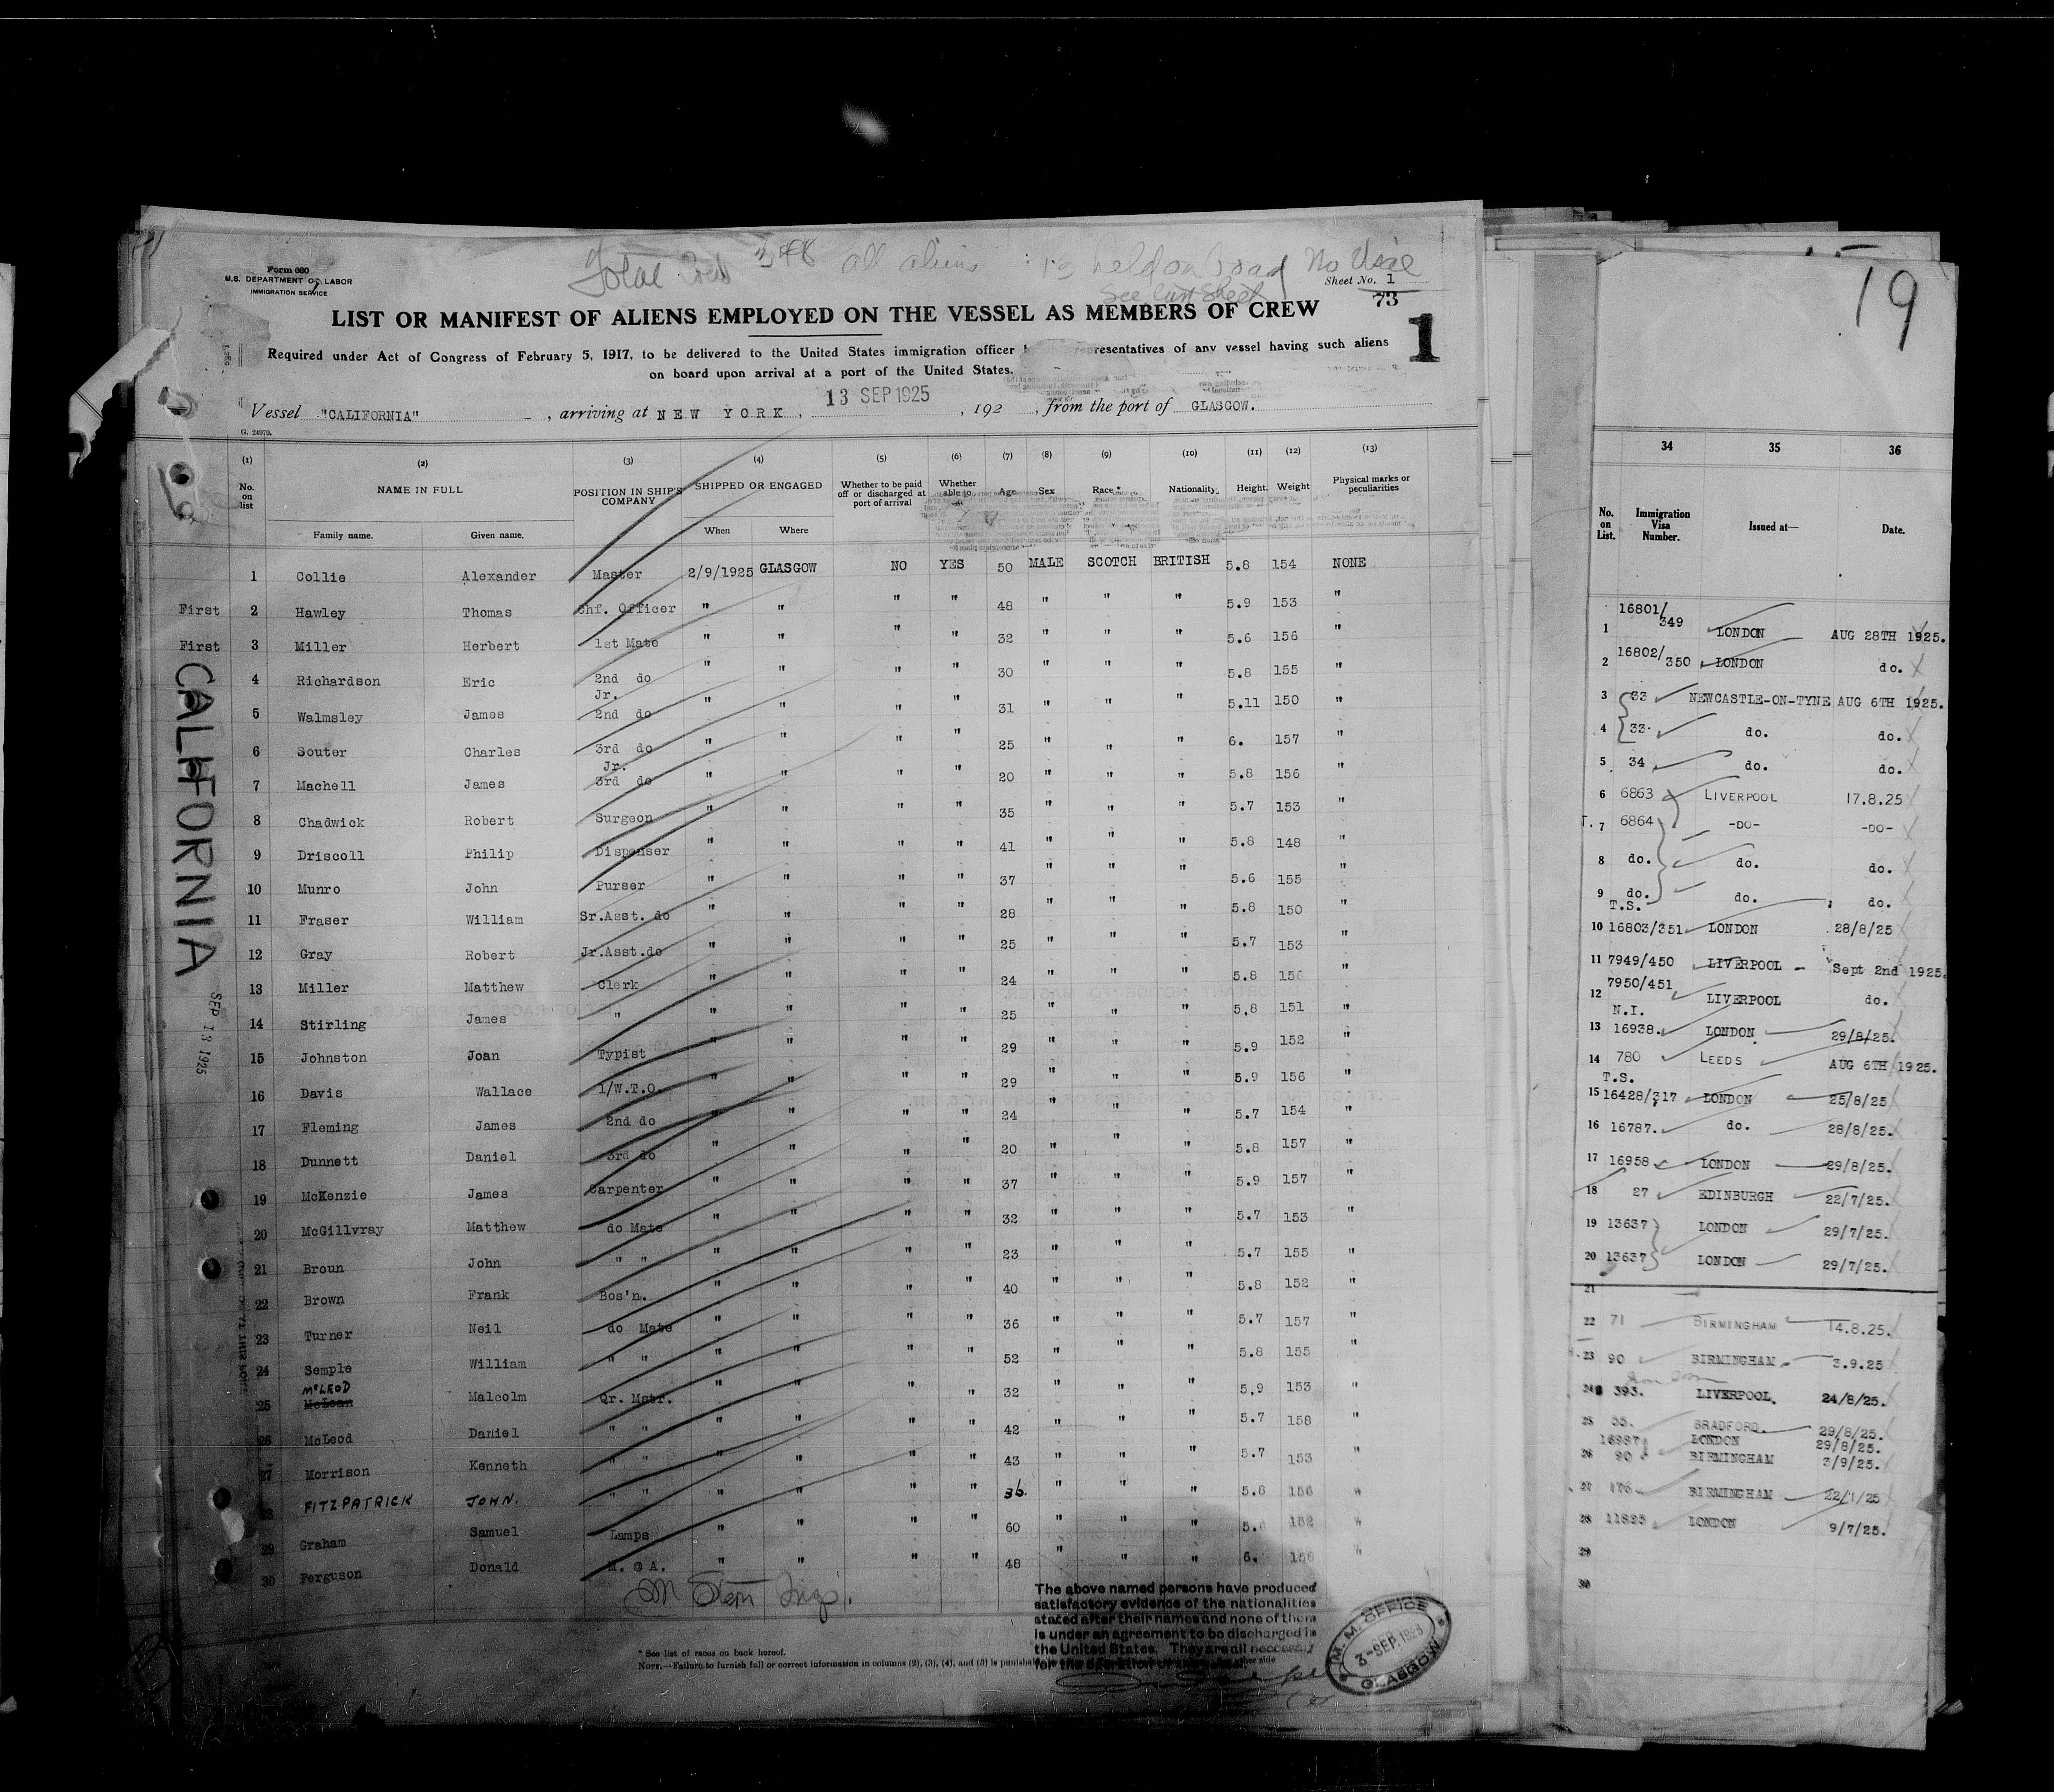 Form 680
U.S. DEPARTMENT OF LABOR
IMMIGRATION SERVICE
Total 348 all aliens held on board No
See last Sheet
Sheet No. 1
73
1
LIST OR MANIFEST OF ALIENS EMPLOYED ON THE VESSEL AS MEMBERS OF CREW
Required under Act of Congress of February 5, 1917, to be delivered to the United States immigration officer representatives of any vessel having such aliens
on board upon arrival at a port of the United States.
Vessel "CALIFORNIA" , arriving at NEW YORK, 13 SEP 1925 , 192 , from the port of GLASGOW.
G. 24970.
(1) (2) (3) (4) (5) (6) (7) (8) (9) (10) (11) (12) (13)
No. on list NAME IN FULL POSITION IN SHIP'S COMPANY SHIPPED OR ENGAGED Whether to be paid off or discharged at port of arrival Whether able to Age Sex Race * Nationality Height. Weight Physical marks or peculiarities
Family name. Given name. When Where
1 Collie Alexander Master 2/9/1925 GLASGOW NO YES 50 MALE SCOTCH BRITISH 5.8 154 NONE
First 2 Hawley Thomas Chf. Officer " " " " 48 " " " 5.9 153 "
First 3 Miller Herbert 1st Mate " " " " 32 " " " 5.6 156 "
4 Richardson Eric 2nd do " " " " 30 " " " 5.8 155 "
5 Walmsley James Jr. 2nd do " " " " 31 " " " 5.11 150 "
6 Souter Charles 3rd do " " " " 25 " " " 6. 157 "
7 Machell James Jr. 3rd do " " " " 20 " " " 5.8 156 "
8 Chadwick Robert Surgeon " " " " 35 " " " 5.7 153 "
9 Driscoll Philip Dispenser " " " " 41 " " " 5.8 148 "
10 Munro John Purser " " " " 37 " " " 5.6 155 "
11 Fraser William Sr.Asst. do " " " " 28 " " " 5.8 150 "
12 Gray Robert Jr.Asst.do " " " " 25 " " " 5.7 153 "
13 Miller Matthew Clerk " " " " 24 " " " 5.8 156 "
14 Stirling James " " " " " 25 " " " 5.8 151 "
15 Johnston Joan Typist " " " " 29 " " " 5.9 152 "
16 Davis Wallace 1/W.T.O. " " " " 29 " " " 5.9 156 "
17 Fleming James 2nd do " " " " 24 " " " 5.7 154 "
18 Dunnett Daniel 3rd do " " " " 20 " " " 5.8 157 "
19 McKenzie James Carpenter " " " " 37 " " " 5.9 157 "
20 McGillvray Matthew do Mate " " " " 32 " " " 5.7 153 "
21 Broun John " " " " " " 23 " " " 5.7 155 "
22 Brown Frank Bos'n. " " " " 40 " " " 5.8 152 "
23 Turner Neil do Mate " " " " 36 " " " 5.7 157 "
24 Semple William " " " " " " 52 " " " 5.8 155 "
McLEOD
25 McLean Malcolm Qr. Mstr. " " " " 32 " " " 5.9 153 "
26 McLeod Daniel " " " " " " 42 " " " 5.7 158 "
27 Morrison Kenneth " " " " " " 43 " " " 5.7 153 "
28 FITZPATRICK JOHN. " " " " " " 36. " " " 5.8 156 "
29 Graham Samuel Lamps " " " " 60 " " " 5. 152 "
30 Ferguson Donald M. @ A. " " " " 48 " " " 6. 156 "
CALIFORNIA
SEP 13 1925
The above named persons have produced
satisfactory evidence of the nationalities
stated after their names and none of them
is under an agreement to be discharged in
the United States. They are all necessary
for the operation of the vessel.
IMM. OFFICE
3-SEP.1925
GLASGOW
* See list of races on back hereof.
NOTE.—Failure to furnish full or correct information in columns (2), (3), (4), and (5) is punishable other side
19
34 35 36
No. on List. Immigration Visa Number. Issued at— Date.
1 16801/349 LONDON AUG 28TH 1925.
2 16802/350 LONDON do.
3 33 NEWCASTLE-ON-TYNE AUG 6TH 1925.
4 33. do. do.
5 34 do. do.
6 6863 LIVERPOOL 17.8.25
T. 7 6864 -DO- -DO-
8 do. do. do.
9 do. do. do.
T.S.
10 16803/351 LONDON 28/8/25
11 7949/450 LIVERPOOL Sept 2nd 1925.
12 7950/451 LIVERPOOL do.
N.I.
13 16938. LONDON 29/8/25.
14 780 LEEDS AUG 6TH 1925.
T.S.
15 16428/317 LONDON 25/8/25
16 16787. do. 28/8/25.
17 16958 LONDON 29/8/25.
18 27 EDINBURGH 22/7/25.
19 13637 LONDON 29/7/25.
20 13637 LONDON 29/7/25.
21
22 71 BIRMINGHAM 14.8.25.
23 90 BIRMINGHAM 3.9.25
24 393. LIVERPOOL. 24/8/25.
25 55. BRADFORD. 29/8/25.
16987 LONDON 29/8/25.
26 90 BIRMINGHAM 3/9/25.
27 176 BIRMINGHAM 22/1/25
28 11825 LONDON 9/7/25.
29
30